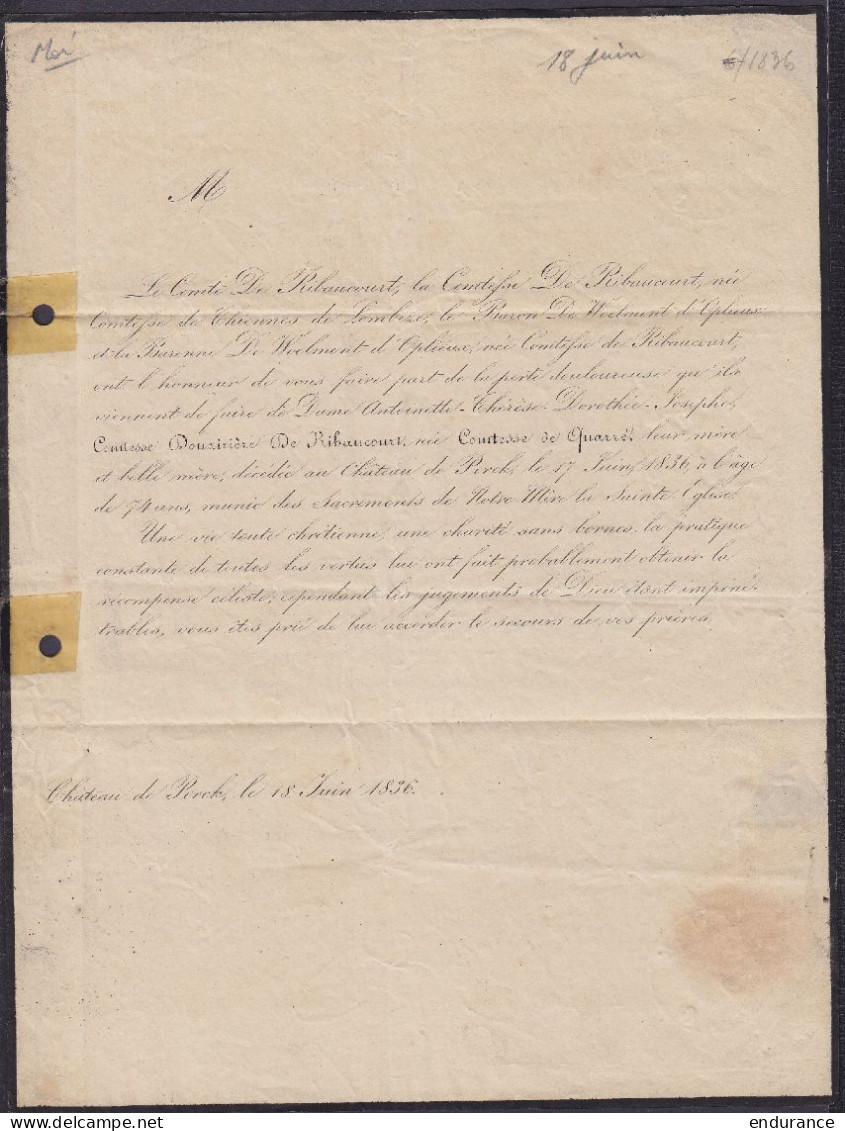 18 juin
6/1836
M
Le Comte De Ribaucourt, la Comtesse De Ribaucourt, née
Comtesse de Thiennes de Lombize, le Baron De Woelmont d'Oplieux
et la Baronne De Woelmont d'Oplieux, née Comtesse de Ribaucourt,
ont l'honneur de vous faire part de la perte douloureuse qu'ils
viennent de faire de Dame Antoinette-Thérèse-Dorothée-Josephe,
Comtesse Douairière De Ribaucourt, née Comtesse de Quarré, leur mère
et belle mère, décédée au Château de Perck, le 17 Juin 1836, à l'âge
de 74 ans, munie des Sacrements de Notre Mère la Sainte Eglise.
Une vie toute chrétienne, une charité sans bornes, la pratique
constante de toutes les vertus lui ont fait probablement obtenir la
récompense céleste; cependant les jugements de Dieu étant impéné-
trables, vous êtes prié de lui accorder le secours de vos prières.
Château de Perck, le 18 Juin 1836.
delcampe.net
endurance